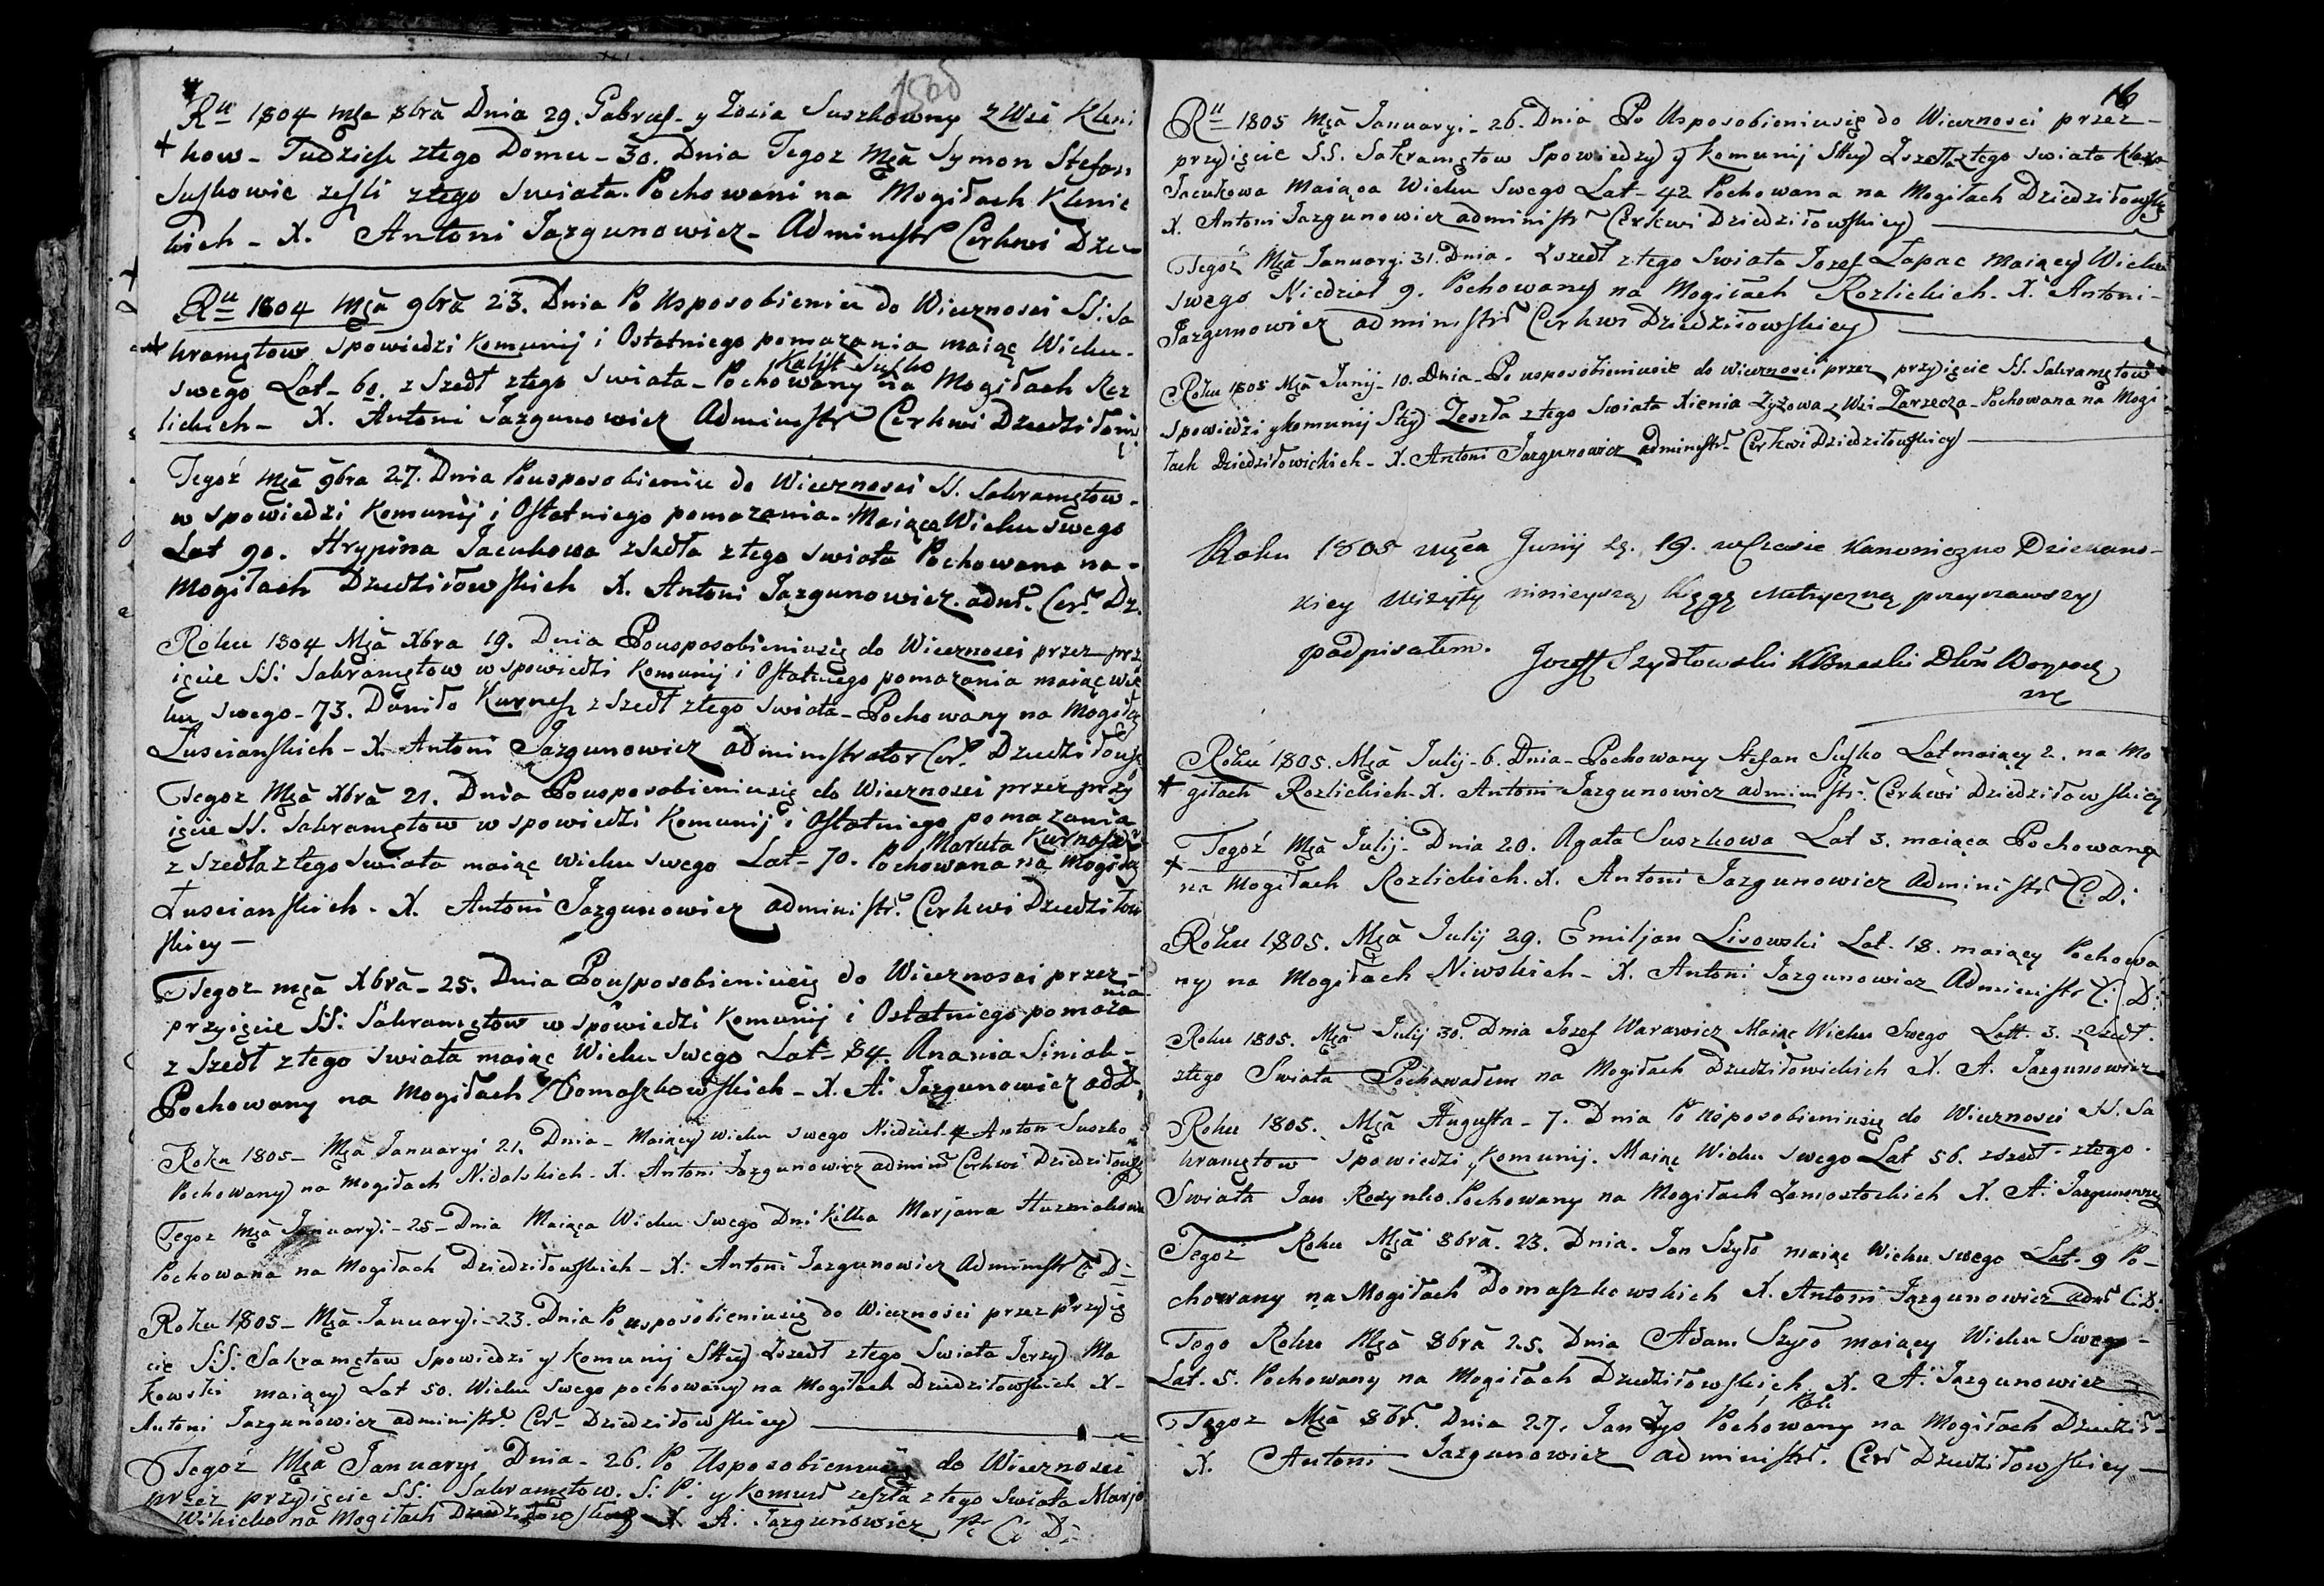 1805
Ru 1804 Mça 8bra Dnia 29. Gabryel y Zosia Suszkowny z Wsi Kleni
kow - Tudziesz z tego Domu - 30. Dnia Tegoz Mça Symon Stefan
Suszkowie zeszli z tego Swiata. Pochowani na Mogiłach Klenic
kich - X. Antoni Jazgunowicz - Administr Cerkwi Dze
Ru 1804 Mça 9bra 23. Dnia Po Usposobieniu do Wiecznosci SS: Sa
kramętow Spowiedzi Komunij i Ostatniego pomazania maiąc Wieku
Kalist Suszko
swego Lat - 60. z Szedł z tego Swiata - Pochowany na Mogiłach Roz
lickich - X. Antoni Jazgunowicz Administr Cerkwi Dziedziłow
Tegoż Mça 9bra 27. Dnia Pousposobieniu do Wiecznosci SS. Sakramętow
w Spowiedzi Komunij i Ostatniego pomazania. Maiąca Wieku swego
Lat 90. Hrypina Jacukowa zszedła z tego swiata Pochowana na
Mogiłach Dziedziłowskich X. Antoni Jazgunowicz. adm. Cer. Dz.
Roku 1804 Mça Xbra 19. Dnia Pousposobieniusię do Wiecznosci przez prz
ięcie SS: Sakramętow w Spowiedzi Komunij i Ostatniego pomazania maiąc wie
ku swego - 73. Daniło Kurnesz z Szedł z tego swiata - Pochowany na Mogiłą
Łuscianskich - X. Antoni Jazgunowicz administrator Cer. Dziedziłowsk
Tegoz Mça Xbra 21. Dnia Pousposobieniusię do Wiecznosci przez przy
ięcie SS. Sakramętow w Spowiedzi Komunij i Ostatniego pomazania
Maruta Kurnesz
z szedła z tego swiata maiąc wieku swego Lat - 70. Pochowana na Mogiłą
Łuscianskich - X. Antoni Jazgunowicz administr. Cerkwi Dziedziłow
skiey -
Tegoz mça Xbra - 25. Dnia Pousposobieniusię do Wiecznosci przez -
nia
przyięcie SS: Sakramętow w Spowiedzi Komunij i Ostatniego pomaza
z Szedł z tego Swiata maiąc Wieku swego Lat - 84. Anania Siniak -
Pochowany na Mogiłach Domaszkowskich - X. A: Jazgunowicz
Roku 1805 - Mça Januaryi 21. Dnia - Maiący wieku swego Niedziel 4 Anton Suszko
Pochowany na Mogiłach Nidalskich - X. Antoni Jazgunowicz admin Cerkwi Dziedziłow
Tegoz Mça Januaryi - 25 - Dnia Maiąca Wieku swego Dni kilka Marjana
Pochowana na Mogiłach Dziedziłowskich - X. Antoni Jazgunowicz Administr C: D:
Roku 1805 - Mça Januaryi - 23. Dnia Po usposobieniusię do Wiecznosci przez przyię
cie SS: Sakramętow Spowiedzi y Komunij Stey Zszedł z tego Swiata Jerzy Ma
kowski maiący Lat 50. Wieku swego pochowany na Mogiłach Dziedziłowskich X -
Antoni Jazgunowicz administr. Cer - Dziedziłowskiey
Tegoż Mça Januaryi Dnia - 26. Po Usposobieniusię do Wiecznosci
przez przyięcie SS: Sakramętow. S: P: y Komun zeszła z tego Swiata Marja
na Mogiłach X A. Jazgunowicz C: D:
16
Ru 1805 Mça Januaryi - 26. Dnia Po Usposobieniusię do Wiecznosci przez -
przyięcie SS. Sakramętow Spowiedzy y Komunij Stey Zszedła z tego swiata
Jacukowa Maiąca Wieku swego Lat - 42 Pochowana na Mogiłach Dziedziłowsk
X. Antoni Jazgunowicz administr Cerkwi Dziedziłowskiey
Tegoż Mça Januaryi 31. Dnia - Zszedł z tego Swiata Jozef Łapac maiący Wieku
swego Niedziel 9. Pochowany na Mogiłach Rozlickich. X. Antoni -
Jazgunowicz administr Cerkwi Dziedziłowskiey
Roku 1805 Mça Junij - 10. Dnia - Po usposobieniusie do wiecznosci przez przyięcie SS. Sakramętow
Spowiedzi y Komunij Stey Zeszła z tego Swiata Xienia Zyżowa z Wsi Zarzecza - Pochowana na Mogi
łach Dziedziłowickich - X. Antoni Jazgunowicz administr. Cerkwi Dziedziłowskiey
Roku 1805 mça Junij 19. w Czasie Kanoniczno Dziekans-
kiey Wizyty ninieyszą Xięgę Metryczną przeyrzawszy
podpisałem. Jozeff Szydłowski
Roku 1805. Mça Julij - 6. Dnia - Pochowany Stefan Suszko Lat maiący 2. na Mo
giłach Rozlickich - X. Antoni Jazgunowicz administr. Cerkwi Dziedziłowskiey
Tegoż Mça Julij - Dnia 20. Agata Suszkowa Lat 3. maiąca Pochowana
na Mogiłach Rozlickich. X. Antoni Jazgunowicz administr C: D:
Roku 1805. Mça Julij 29. Emiljan Lisowski Lat - 18. maiący Pochowa
ny na Mogiłach Niwskich - X. Antoni Jazgunowicz Administr C: D:
Roku 1805. Mça Julij 30. Dnia Jozef Warawicz Maiąc Wieku Swego Latt. 3. zszedł.
z tego Swiata Pochowałem na Mogiłach Dziedziłowickich X. A. Jazgunowicz
Roku 1805. Mça Augusta - 7. Dnia Po Usposobieniusię do Wiecznosci SS. Sa
kramętow Spowiedzi y Komunij. Maiąc Wieku swego Lat 56. zszedł z tego.
Swiata Jan Rozynko. Pochowany na Mogiłach Zamostockich X. A: Jazgunowicz
Tegoż Roku Mça 8bra. 23. Dnia. Jan Szyło maiąc Wieku swego Lat. 9 Po-
chowany na Mogiłach Domaszkowskich X. Antoni Jazgunowicz adm C: D:
Tego Roku Mça 8bra 25. Dnia Adam Szyło maiący Wieku Swego -
Lat. 5. Pochowany na Mogiłach Dziedziłowskich X. A: Jazgunowicz -
Tegoz Mça 8br. Dnia 27. Jan Zys Pochowany na Mogiłach Dziedził
X. Antoni Jazgunowicz administr. Cer Dziedziłowskiey -